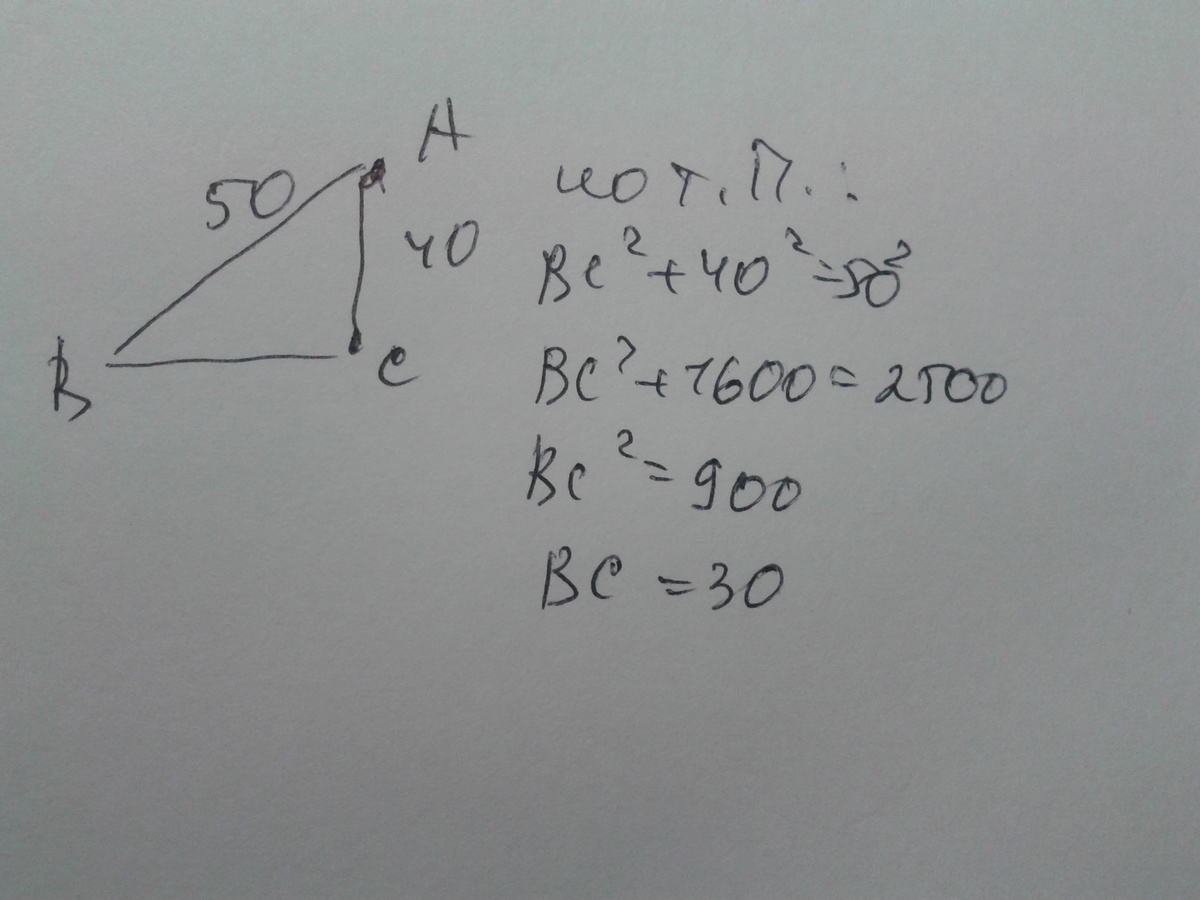 A
50
40
B
C
по т. П. :
BC² + 40² = 50²
BC² + 1600 = 2500
BC² = 900
BC = 30